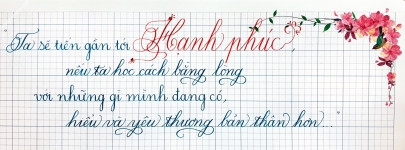 Ta sẽ tiến gần tới Hạnh phúc,
nếu ta học cách bằng lòng
với những gì mình đang có,
hiểu và yêu thương bản thân hơn...